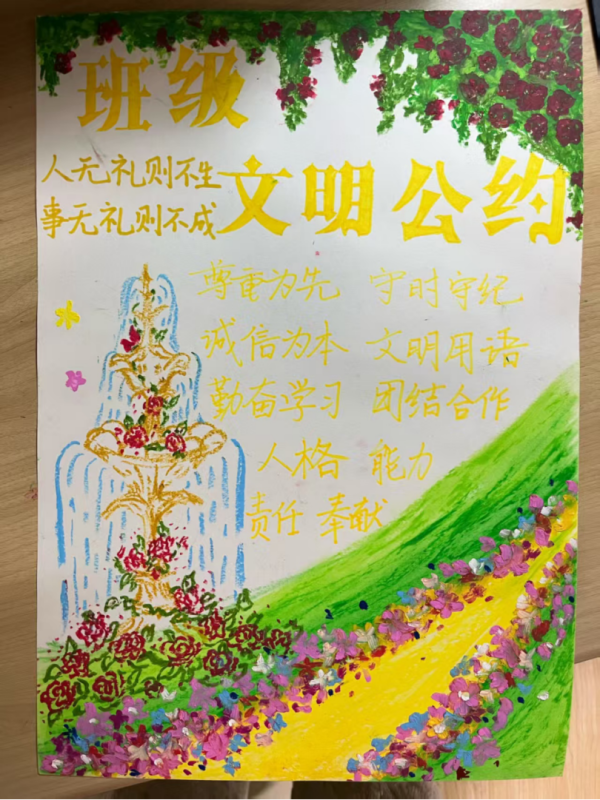 班级
人无礼则不生
事无礼则不成
文明公约
尊重为先 守时守纪
诚信为本 文明用语
勤奋学习 团结合作
人格 能力
责任 奉献